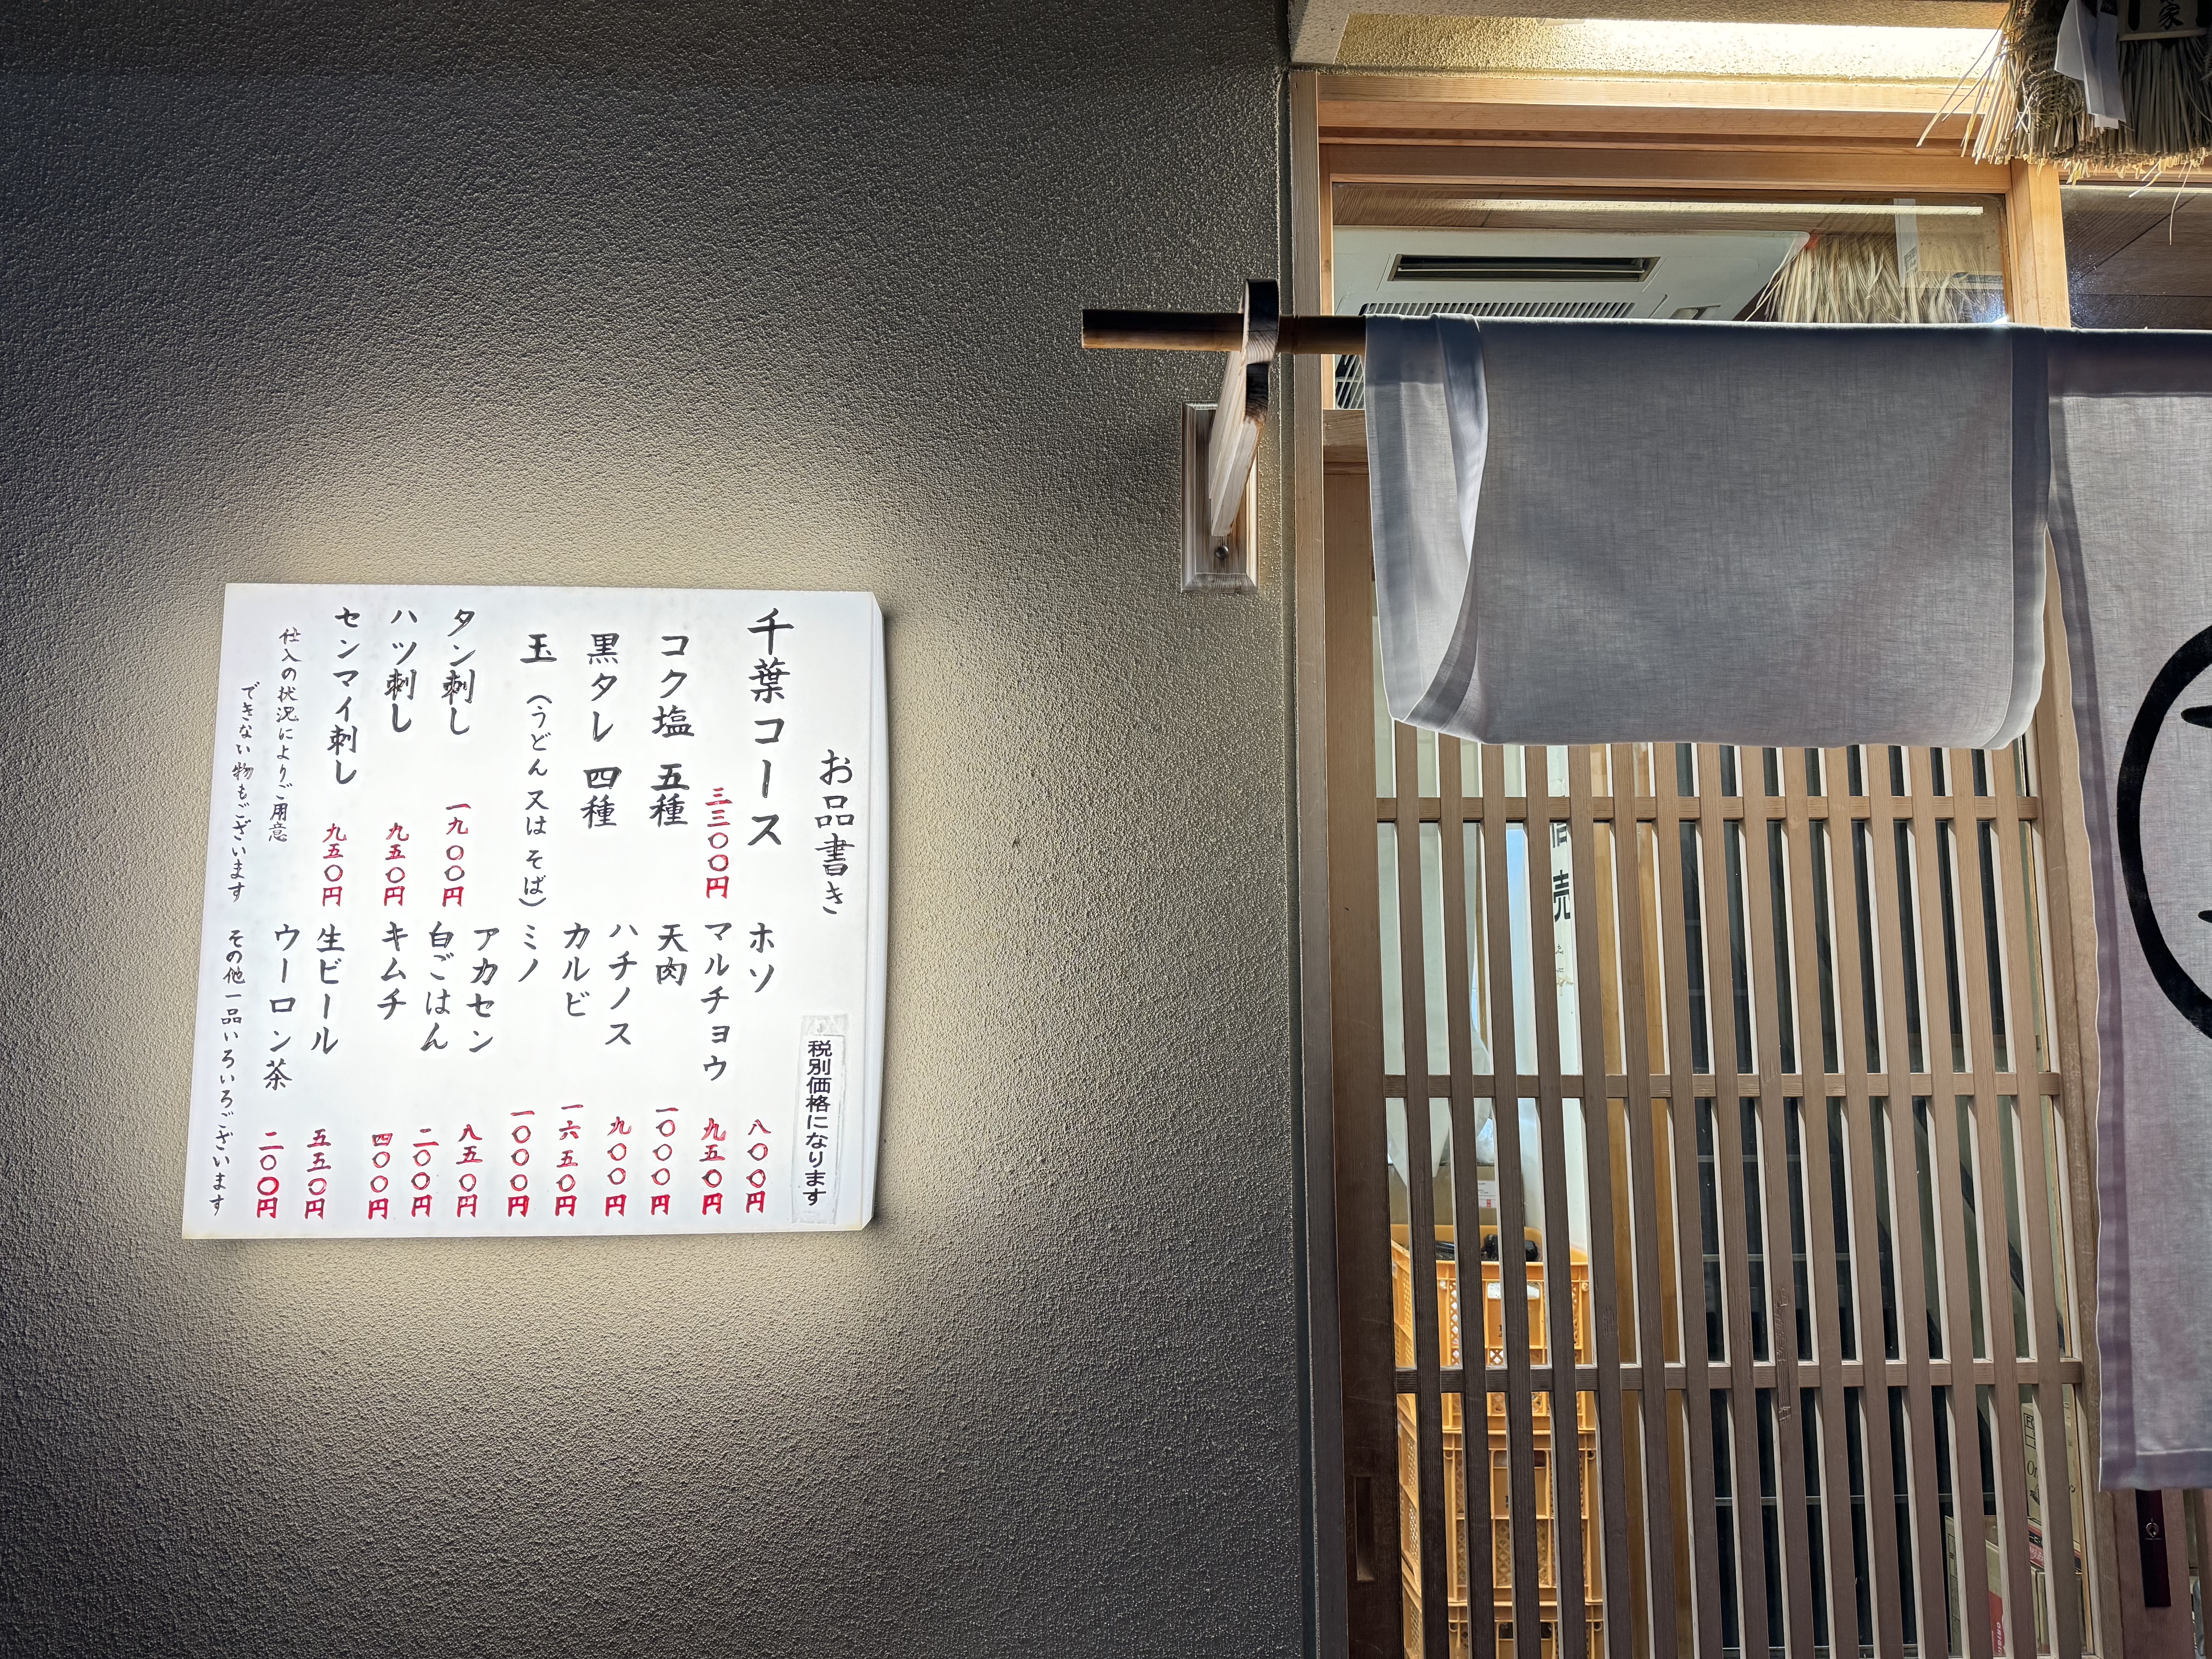 お品書き
税別価格になります
千葉コース
三三〇〇円
コク塩 五種
黒タレ 四種
玉 (うどん又はそば)
タン刺し 一九〇〇円
ハツ刺し 九五〇円
センマイ刺し 九五〇円
仕入の状況によりご用意
できない物もございます
ホソ 八〇〇円
マルチョウ 九五〇円
天肉 一〇〇〇円
ハチノス 九〇〇円
カルビ 一六五〇円
ミノ 一〇〇〇円
アカセン 八五〇円
白ごはん 二〇〇円
キムチ 四〇〇円
生ビール 五五〇円
ウーロン茶 二〇〇円
その他一品いろいろございます
家
売